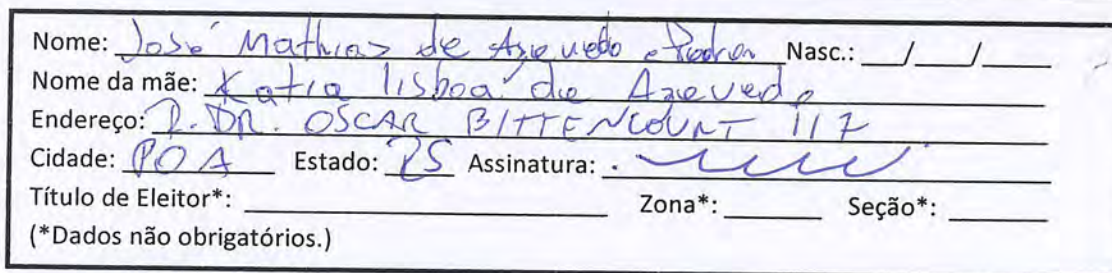 Nome: José Mathias de Azevedo e Nasc.: __/__/____
Nome da mãe: Katia lisboa de Azevedo
Endereço: R. DR. OSCAR BITTENCOURT 117
Cidade: POA Estado: RS Assinatura:
Título de Eleitor*: ____ Zona*: ____ Seção*: ____
(*Dados não obrigatórios.)